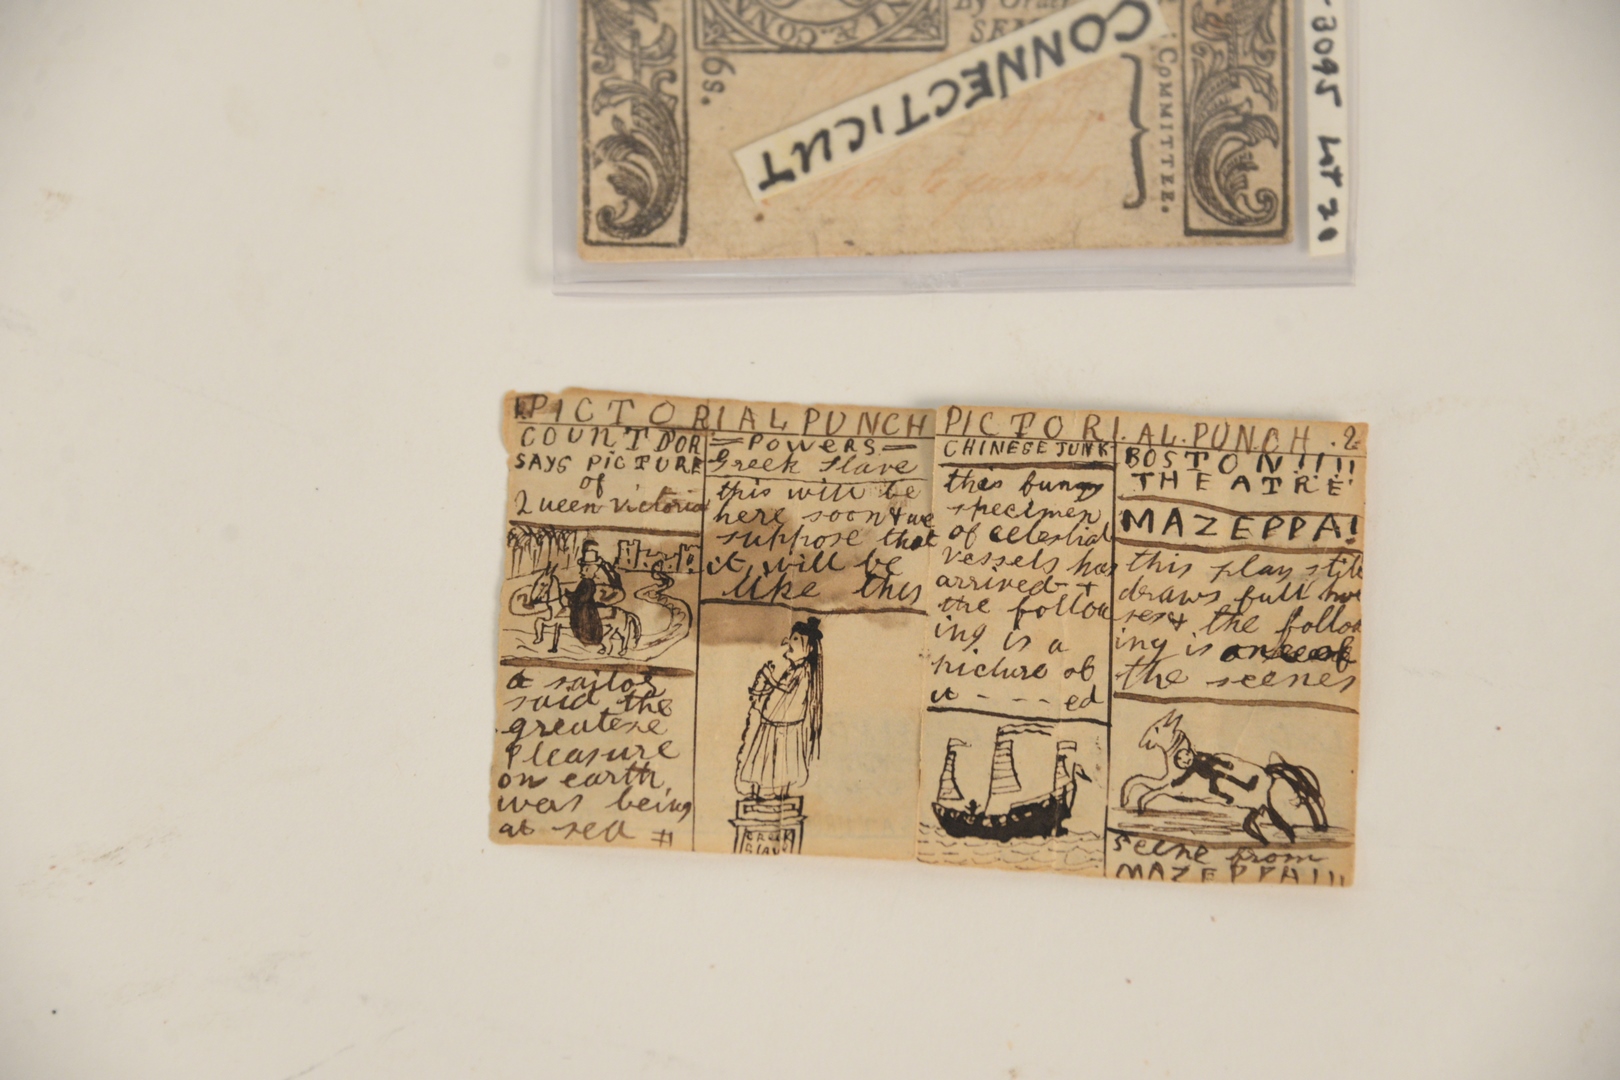 By Order
CONNECTICUT
6s.
COMMITTEE.
3095 LOT 20
PICTORIAL PUNCH
COUNT D'OR
SAYS PICTURE
of
Queen Victoria
a sailor
said the
greatese
pleasure
on earth,
was being
at sea #
=POWERS=
Greek Slave
this will be
here soon & we
suppose that
it will be
like this
GREEK
SLAVE
PICTORIAL PUNCH .2
CHINESE JUNK
this funny
specimen
of celestial
vessels has
arrived - +
the follow
ing is a
picture of
it - - - ed
BOSTON!!!!
THEATRE
MAZEPPA!
this play still
draws full hou
ses & the follow
ing is one of
the scenes
Scene from
MAZEPPA!!!